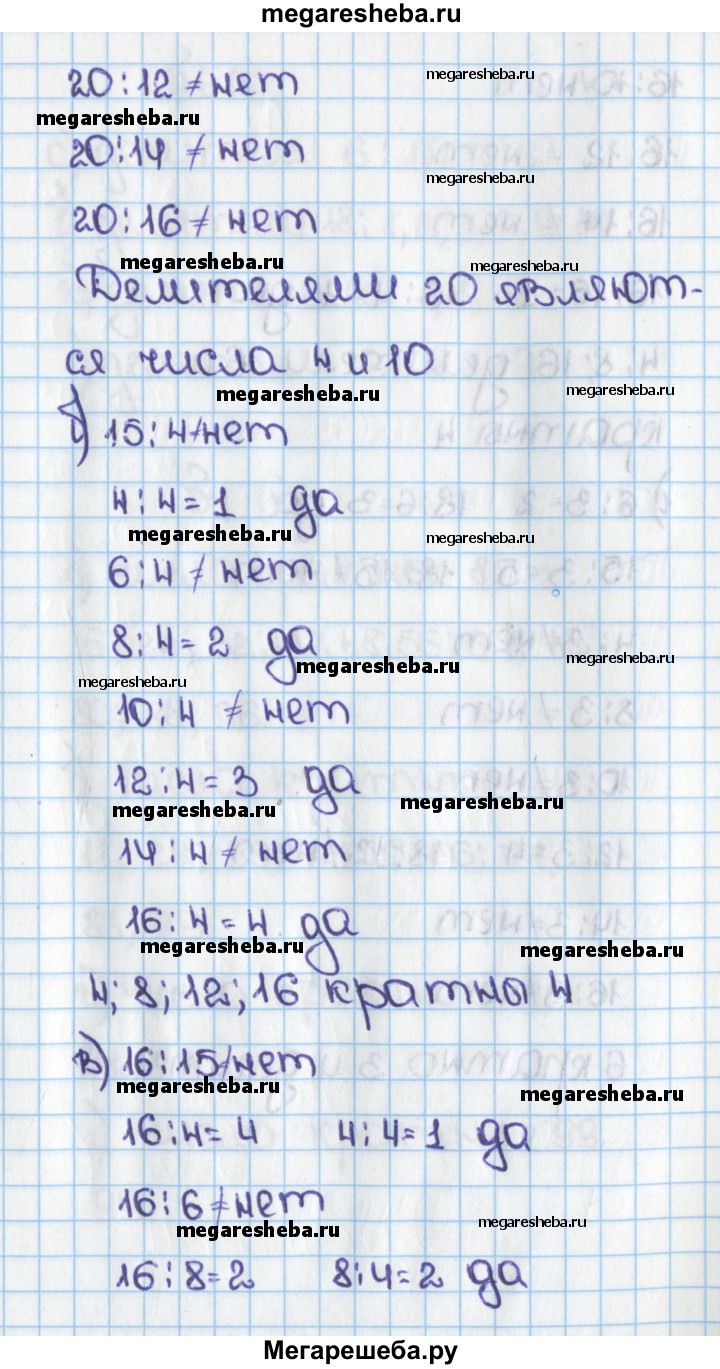 megaresheba.ru
20:12 ≠ нет
megaresheba.ru
megaresheba.ru
20:14 ≠ нет
megaresheba.ru
20:16 ≠ нет
megaresheba.ru
megaresheba.ru
Делителями 20 являют-
ся числа 4 и 10
megaresheba.ru
megaresheba.ru
15:4 ≠ нет
4:4=1 да
megaresheba.ru
megaresheba.ru
6:4 ≠ нет
8:4=2 да
megaresheba.ru
megaresheba.ru
megaresheba.ru
10:4 ≠ нет
12:4=3 да
megaresheba.ru
megaresheba.ru
14:4 ≠ нет
16:4=4 да
megaresheba.ru
megaresheba.ru
4; 8; 12; 16 кратны 4
в) 16:15 ≠ нет
megaresheba.ru
megaresheba.ru
16:4=4 4:4=1 да
16:6 ≠ нет
megaresheba.ru
megaresheba.ru
16:8=2 8:4=2 да
Мегарешеба.ру